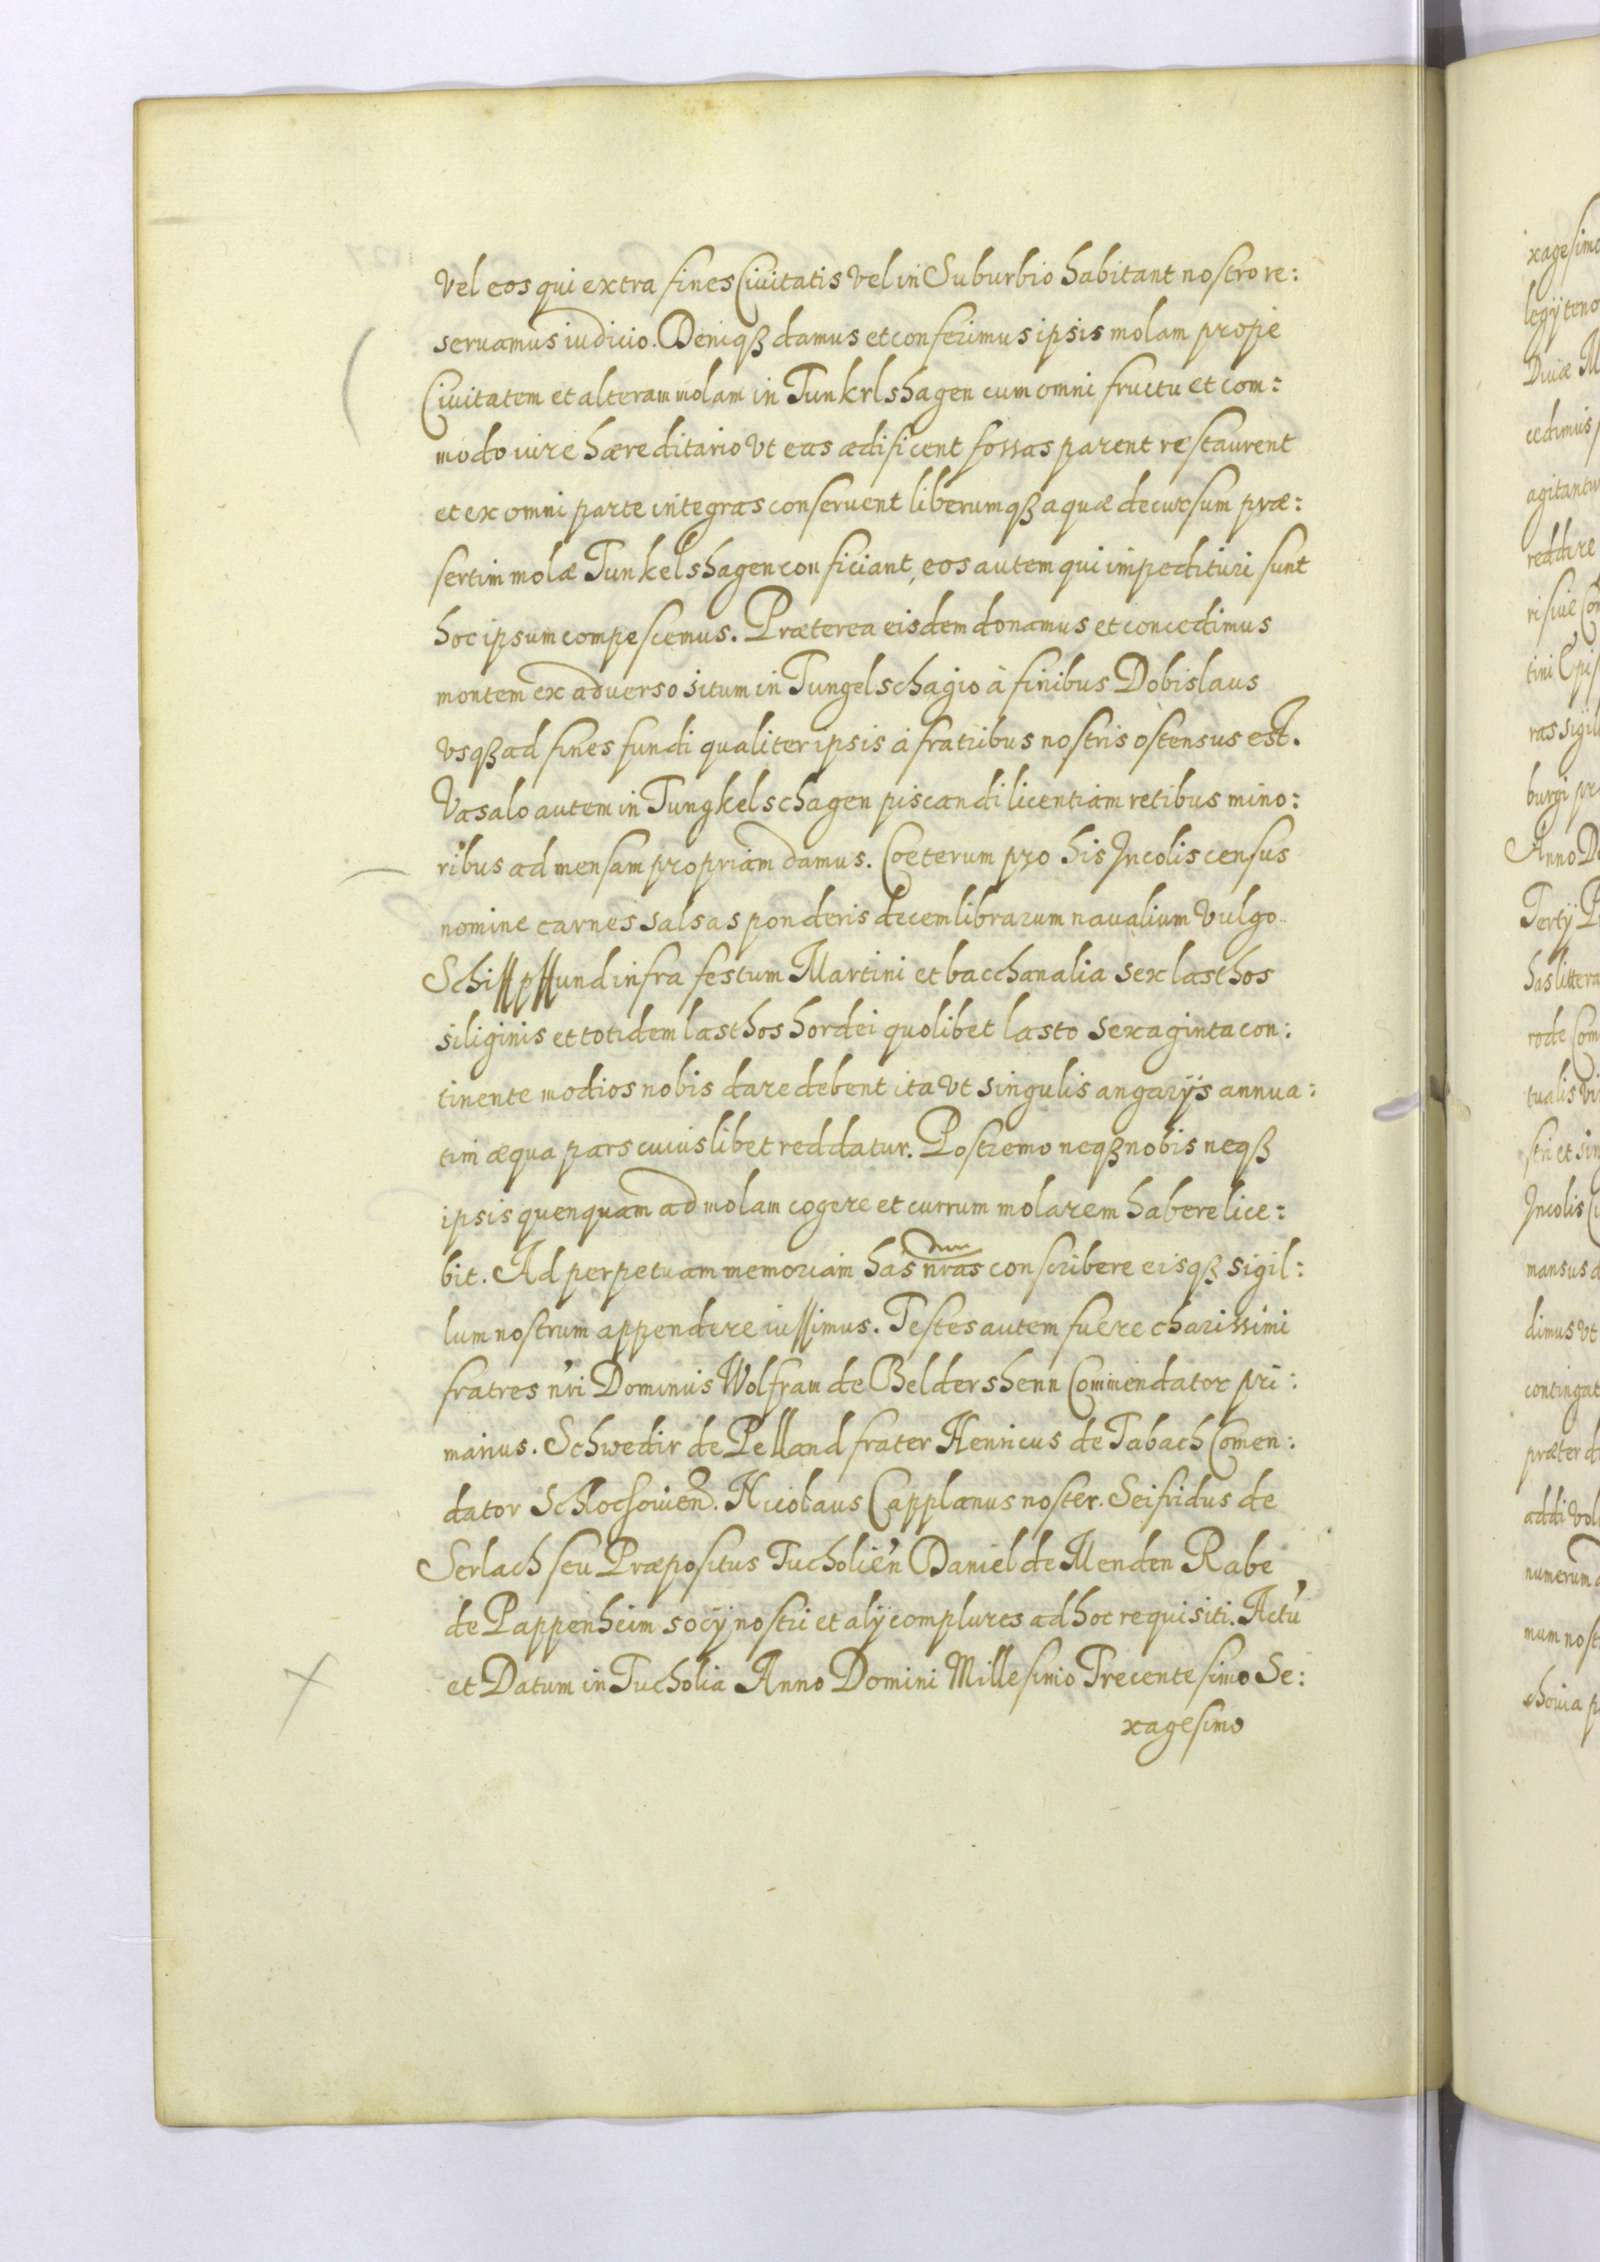 vel eos qui extra fines Ciuitatis vel in Suburbio habitant nostro re:
seruamus iudicio. Deniqꝫ damus et conferimus ipsis molam prope
Ciuitatem et alteram molam in Tunkrlshagen cum omni fructu et com:
modo iure hæreditario vt eas ædificent fossas parent restaurent
et ex omni parte integras conseruent liberumqꝫ aquæ decursum præ:
sertim molæ Tunkelshagen conficiant, eos autem qui impedituri sunt
hoc ipsum compescemus. Præterea eisdem donamus et concedimus
montem ex aduerso situm in Tungelschagio à finibus Dobislaus
vsqꝫ ad fines fundi qualiter ipsis à fratribus nostris ostensus est.
Vasalo autem in Tungkelschagen piscandi licentiam retibus mino:
ribus ad mensam propriam damus. Cœterum pro his Incolis census
nomine carnes salsas ponderis decem librarum naualium vulgo
Schiffpffund infra festum Martini et bacchanalia sex lasthos
siliginis et totidem lasthos hordei quolibet lasto sexaginta con:
tinente modios nobis dare debent ita vt singulis angarijs annua:
tim æqua pars cuiuslibet reddatur. Postremo neqꝫ nobis neqꝫ
ipsis quenquam ad molam cogere et currum molarem habere lice:
bit. Ad perpetuam memoriam has nras conscribere eisqꝫ sigil:
lum nostrum appendere iussimus. Testes autem fuere charissimi
fratres nri Dominus Wolfram de Beldershenn Commendator pri:
marius. Schwedir de Pelland frater Henricus de Tabach Comen:
dator Schochouien. Nicolaus Capplanus noster. Seifridus de
Serlach seu Præpositus Tucholien Daniel de Menden Rabe
de Pappenheim socij nostri et alij complures ad hoc requisiti. Actu
et Datum in Tucholia Anno Domini Millesimo Trecentesimo Se:
xagesimo